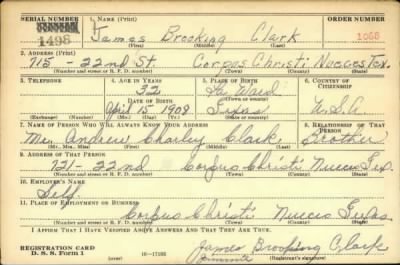 SERIAL NUMBER 1. NAME (Print) ORDER NUMBER
1498 James Brooking Clark 1068
(First) (Middle) (Last)
2. ADDRESS (Print)
715 - 22nd St. Corpus Christi Nueces Tex.
(Number and street or R. F. D. number) (Town) (County) (State)
3. TELEPHONE 4. AGE IN YEARS 5. PLACE OF BIRTH 6. COUNTRY OF CITIZENSHIP
32 La Ward
DATE OF BIRTH (Town or county)
April 15 1908 Texas U.S.A.
(Exchange) (Number) (Mo.) (Day) (Yr.) (State or country)
7. NAME OF PERSON WHO WILL ALWAYS KNOW YOUR ADDRESS 8. RELATIONSHIP OF THAT PERSON
Mr. Andrew Charley Clark Brother
(Mr., Mrs., Miss) (First) (Middle) (Last)
9. ADDRESS OF THAT PERSON
721 - 22nd Corpus Christi Nueces Tex.
(Number and street or R. F. D. number) (Town) (County) (State)
10. EMPLOYER'S NAME
Self
11. PLACE OF EMPLOYMENT OR BUSINESS
Corpus Christi Nueces Texas
(Number and street or R. F. D. number) (Town) (County) (State)
I AFFIRM THAT I HAVE VERIFIED ABOVE ANSWERS AND THAT THEY ARE TRUE.
REGISTRATION CARD James Brooking Clark
D. S. S. Form 1 (over)